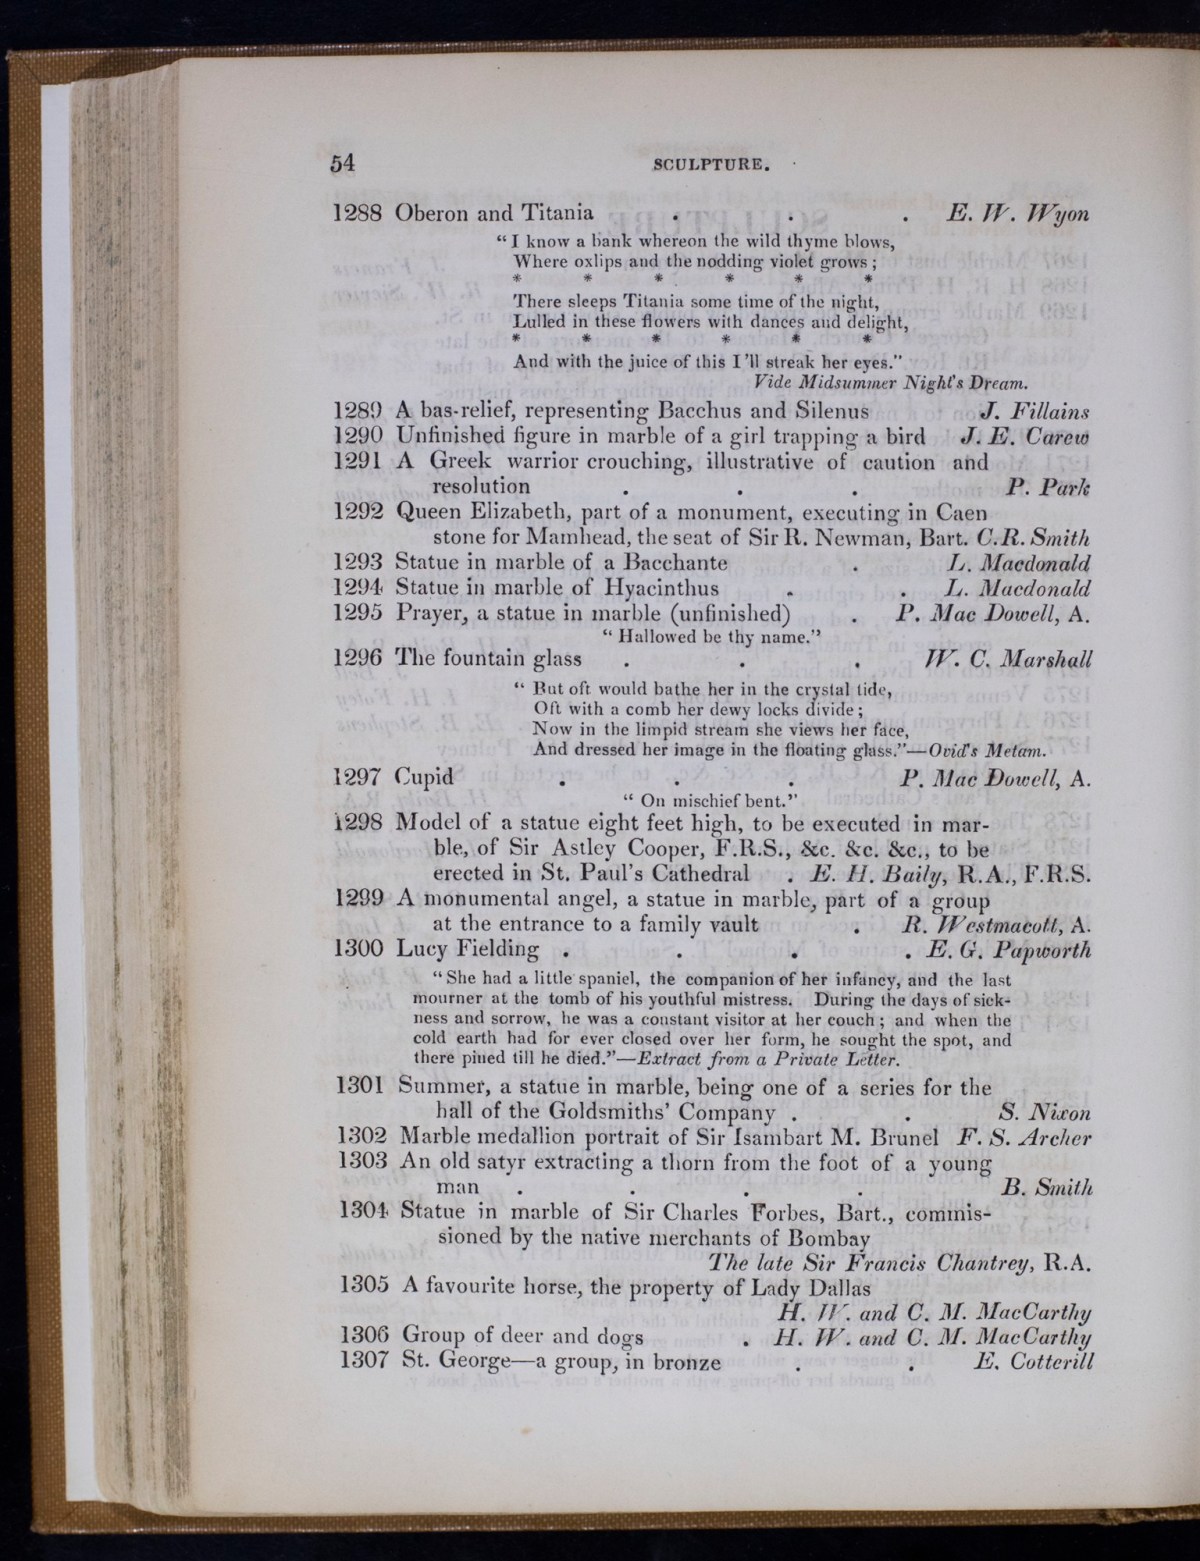 54 SCULPTURE.
1288 Oberon and Titania . . . E. W. Wyon
“I know a bank whereon the wild thyme blows,
Where oxlips and the nodding violet grows;
* * * * * *
There sleeps Titania some time of the night,
Lulled in these flowers with dances and delight,
* * * * * *
And with the juice of this I'll streak her eyes.”
Vide Midsummer Night's Dream.
1289 A bas-relief, representing Bacchus and Silenus J. Fillains
1290 Unfinished figure in marble of a girl trapping a bird J. E. Carew
1291 A Greek warrior crouching, illustrative of caution and
resolution . . . P. Park
1292 Queen Elizabeth, part of a monument, executing in Caen
stone for Mamhead, the seat of Sir R. Newman, Bart. C.R. Smith
1293 Statue in marble of a Bacchante . L. Macdonald
1294 Statue in marble of Hyacinthus . . L. Macdonald
1295 Prayer, a statue in marble (unfinished) . P. Mac Dowell, A.
“Hallowed be thy name.”
1296 The fountain glass . . . W. C. Marshall
“But oft would bathe her in the crystal tide,
Oft with a comb her dewy locks divide;
Now in the limpid stream she views her face,
And dressed her image in the floating glass.”—Ovid's Metam.
1297 Cupid . . . P. Mac Dowell, A.
“On mischief bent.”
1298 Model of a statue eight feet high, to be executed in mar-
ble, of Sir Astley Cooper, F.R.S., &c. &c. &c., to be
erected in St. Paul's Cathedral . E. H. Baily, R.A., F.R.S.
1299 A monumental angel, a statue in marble, part of a group
at the entrance to a family vault . R. Westmacott, A.
1300 Lucy Fielding . . . . E. G. Papworth
“She had a little spaniel, the companion of her infancy, and the last
mourner at the tomb of his youthful mistress. During the days of sick-
ness and sorrow, he was a constant visitor at her couch; and when the
cold earth had for ever closed over her form, he sought the spot, and
there pined till he died.”—Extract from a Private Letter.
1301 Summer, a statue in marble, being one of a series for the
hall of the Goldsmiths' Company . . S. Nixon
1302 Marble medallion portrait of Sir Isambart M. Brunel F. S. Archer
1303 An old satyr extracting a thorn from the foot of a young
man . . . . B. Smith
1304 Statue in marble of Sir Charles Forbes, Bart., commis-
sioned by the native merchants of Bombay
The late Sir Francis Chantrey, R.A.
1305 A favourite horse, the property of Lady Dallas
H. W. and C. M. MacCarthy
1306 Group of deer and dogs . H. W. and C. M. MacCarthy
1307 St. George—a group, in bronze . . E. Cotterill